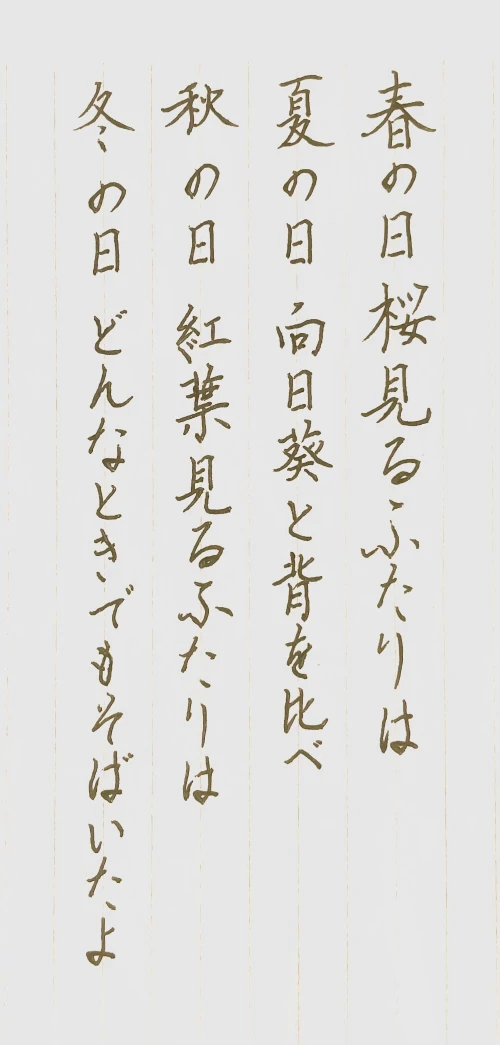 春の日桜見るふたりは
夏の日向日葵と背を比べ
秋の日紅葉見るふたりは
冬の日どんなときでもそばいたよ